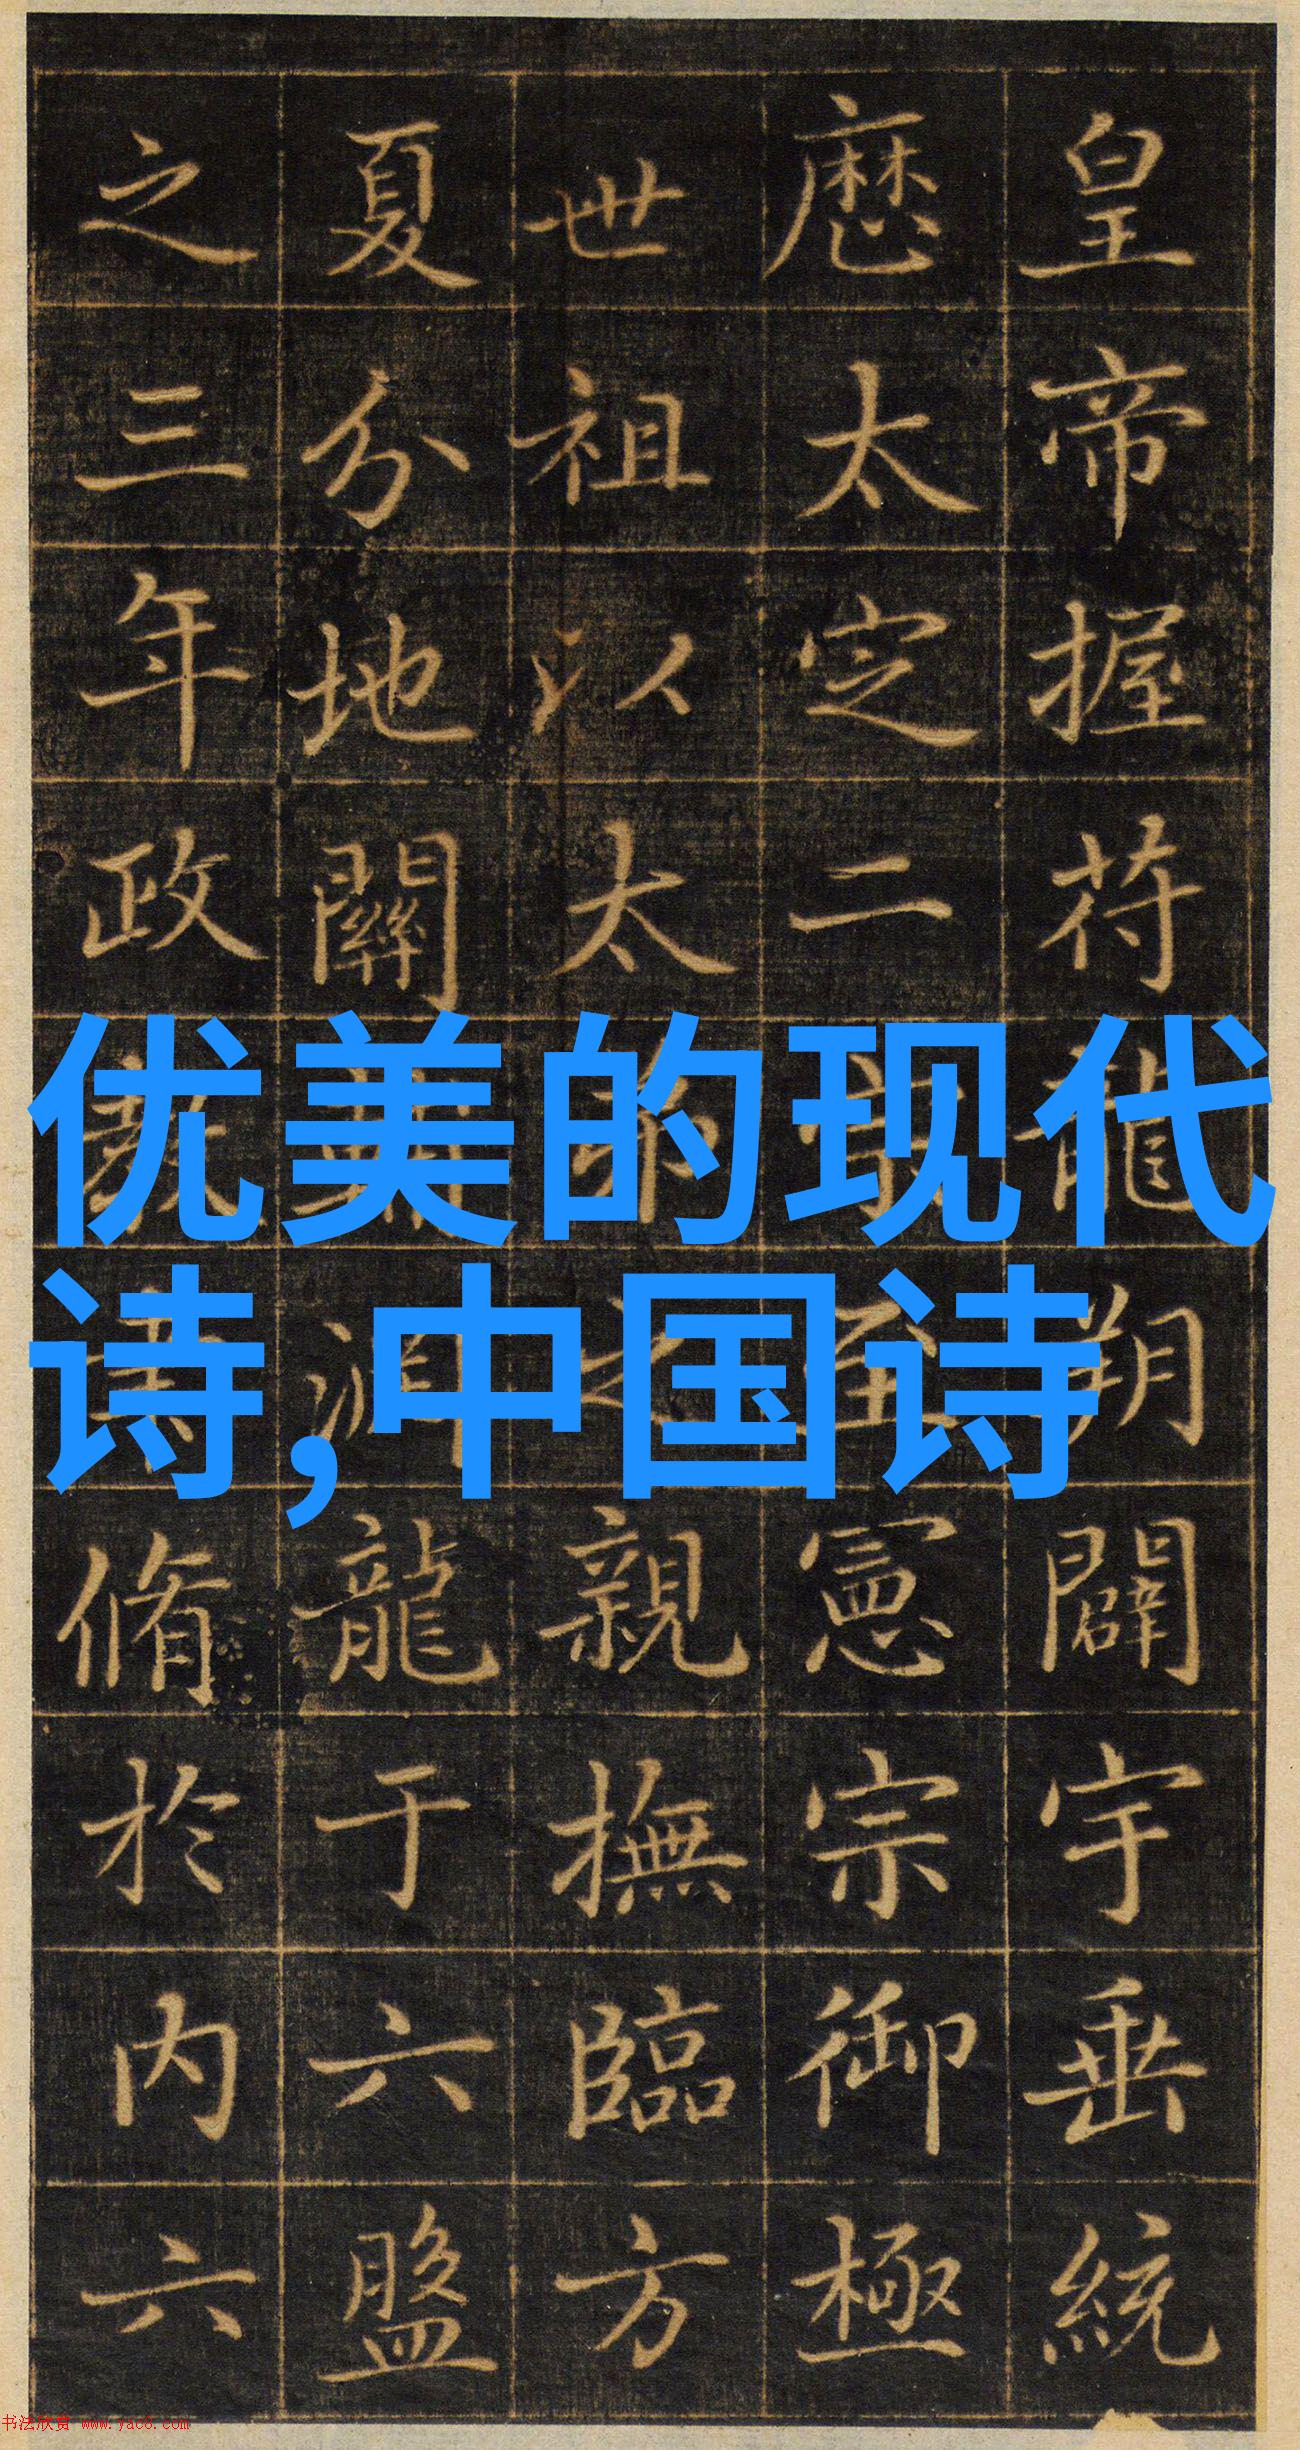 皇帝握符龍朔闢宇垂統
歷太定二至憲宗御極
世祖以太弟之親撫臨方
夏分地關淵龍于六盤
之三年政教脩於内六
优美的现代
诗,中国诗
书法欣赏 www.yac8.com